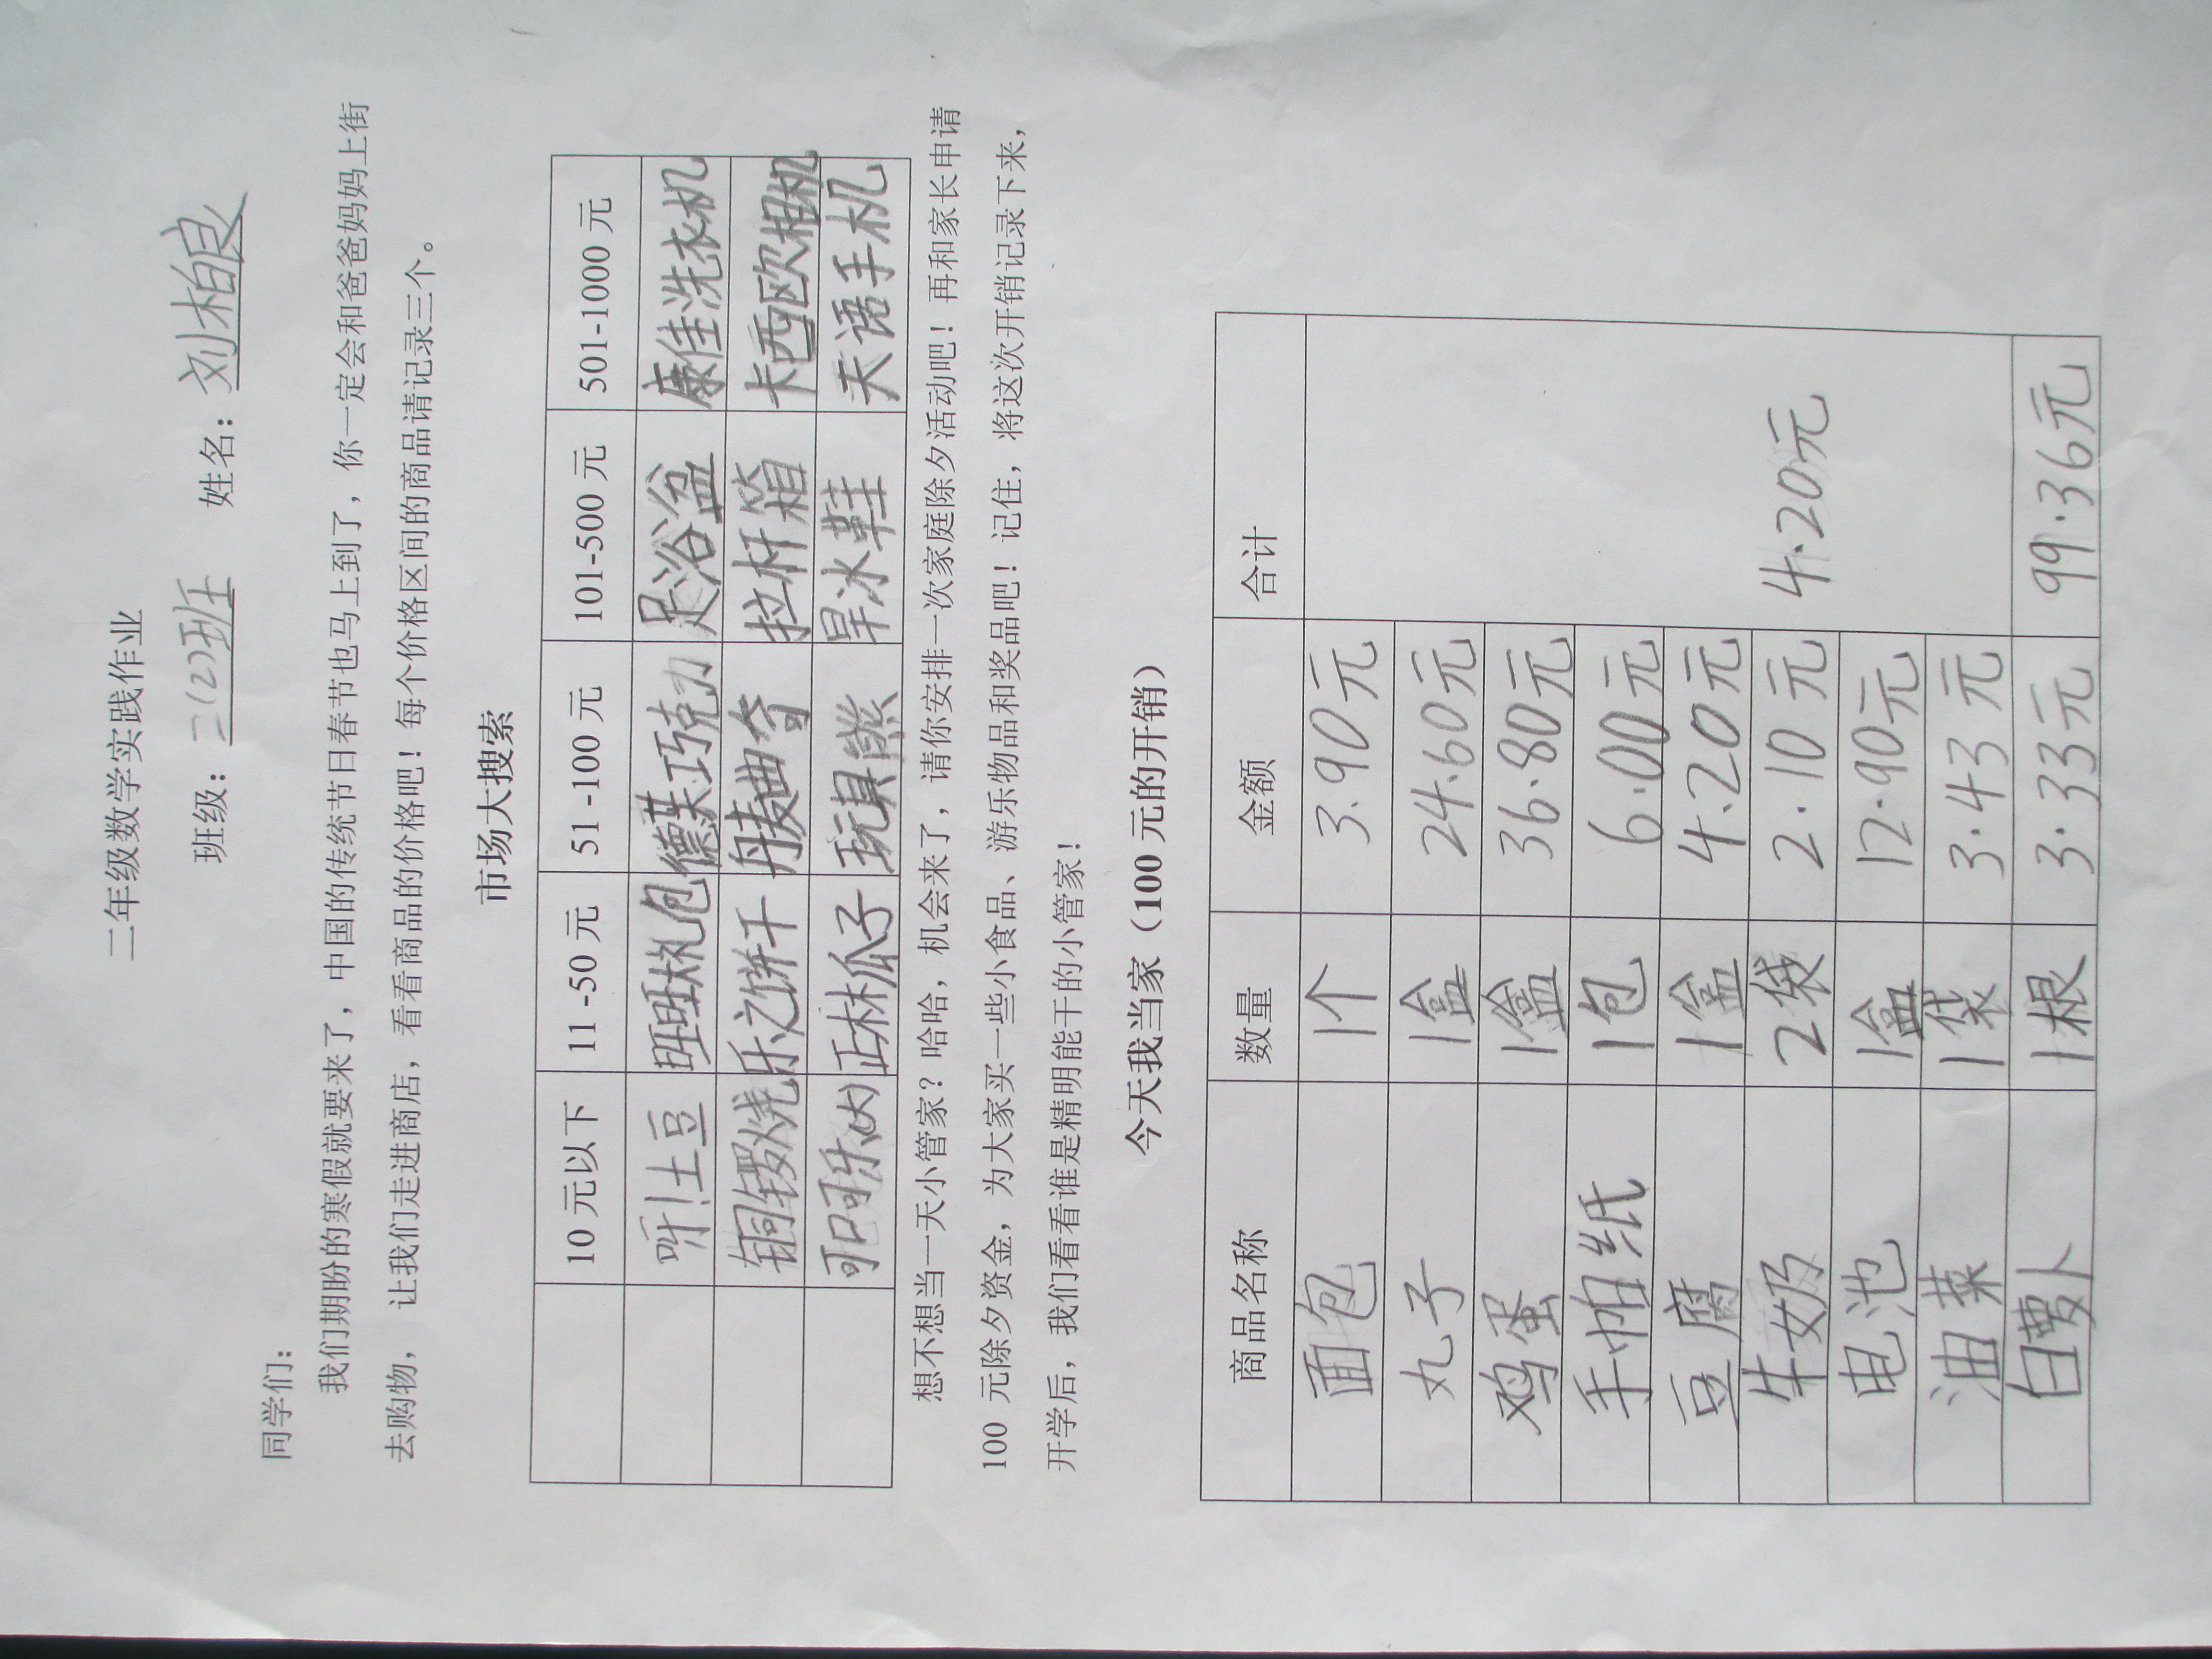 二年级数学实践作业
班级：二(2)班 姓名：刘柏良
同学们：
我们期盼的寒假就要来了，中国的传统节日春节也马上到了，你一定会和爸爸妈妈上街
去购物，让我们走进商店，看看商品的价格吧！每个价格区间的商品请记录三个。
市场大搜索
10 元以下 11 -50 元 51 -100 元 101-500 元 501-1000 元
呀!土豆 旺旺礼包 德芙巧克力 足浴盆 康佳洗衣机
铜锣烧 乐之饼干 丹麦曲奇 拉杆箱 卡西欧相机
可口可乐 正林瓜子 玩具熊 旱冰鞋 天语手机
想不想当一天小管家？哈哈，机会来了，请你安排一次家庭除夕活动吧！再和家长申请
100 元除夕资金，为大家买一些小食品、游乐物品和奖品吧！记住，将这次开销记录下来，
开学后，我们看看谁是精明能干的小管家！
今天我当家（100 元的开销）
商品名称 数量 金额 合计
面包 1个 3.90元
丸子 1盒 24.60元
鸡蛋 1盒 36.80元
手帕纸 1包 6.00元
豆腐 1盒 4.20元
牛奶 2袋 2.10元 4.20元
电池 1盒 12.90元
油菜 1袋 3.43元
白萝卜 1根 3.33元 99.36元